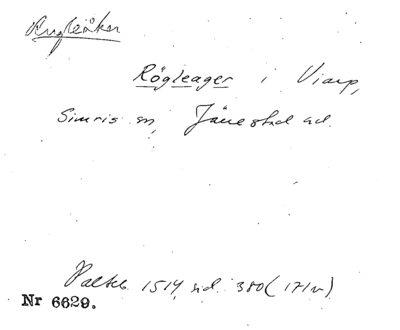 Rögleåker
Rögleager i Viarp,
Simris sn, Järrestad ad.
Palteb. 1514, sid. 380 (171v)
Nr 6629.